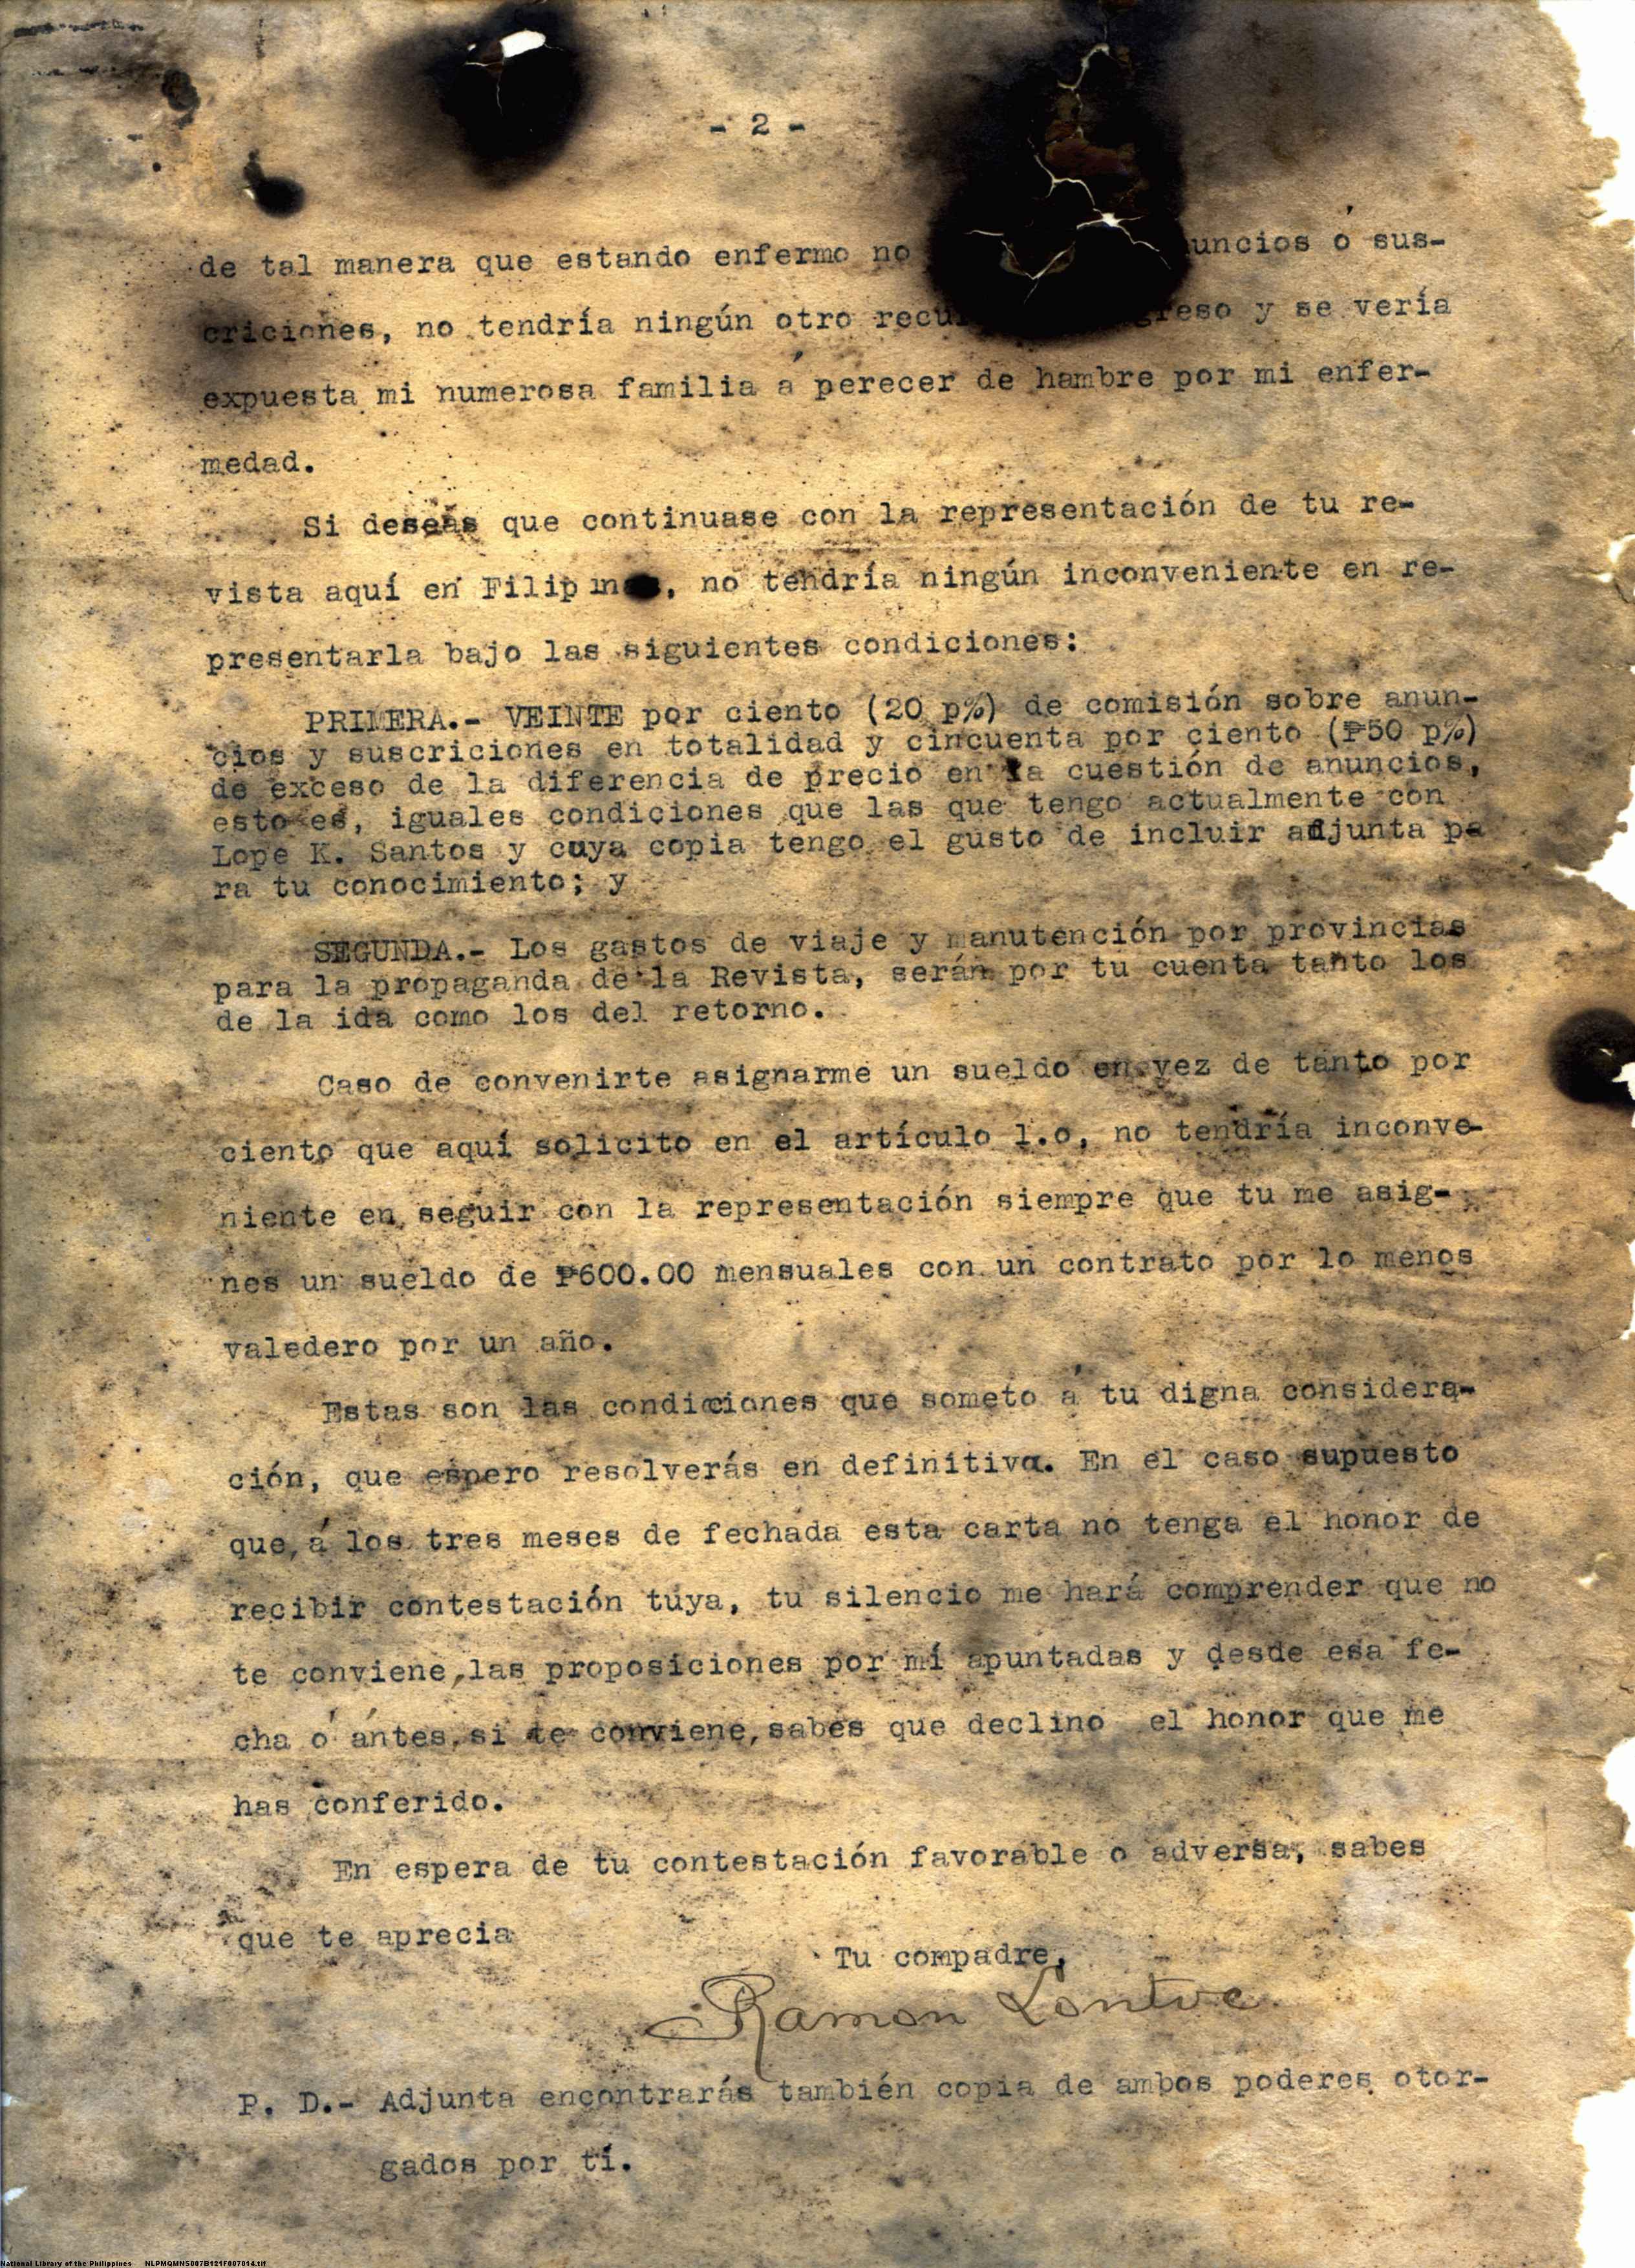 - 2 -
de tal manera que estando enfermo no uncios ó sus-
criciones, no tendría ningún otro greso y se vería
expuesta mi numerosa familia á perecer de hambre por mi enfer-
medad.
Si deseas que continuase con la representación de tu re-
vista aquí en , no tendría ningún inconveniente en re-
presentarla bajo las siguientes condiciones:
PRIMERA.- VEINTE por ciento (20 p%) de comisión sobre anun-
cios y suscriciones en totalidad y cincuenta por ciento (₱50 p%)
de exceso de la diferencia de precio en la cuestión de anuncios,
esto es, iguales condiciones que las que tengo actualmente con
Lope K. Santos y cuya copia tengo el gusto de incluir adjunta pa
ra tu conocimiento; y
SEGUNDA.- Los gastos de viaje y manutención por provincias
para la propaganda de la Revista, serán por tu cuenta tanto los
de la ida como los del retorno.
Caso de convenirte asignarme un sueldo en vez de tanto por
ciento que aquí solicito en el artículo 1.o, no tendría inconve-
niente en seguir con la representación siempre que tu me asig-
nes un sueldo de ₱600.00 mensuales con un contrato por lo menos
valedero por un año.
Estas son las condiciones que someto á tu digna considera-
ción, que espero resolverás en definitiva. En el caso supuesto
que, á los tres meses de fechada esta carta no tenga el honor de
recibir contestación tuya, tu silencio me hará comprender que no
te conviene, las proposiciones por mí apuntadas y desde esa fe-
cha ó ántes, si te conviene, sabes que declino el honor que me
has conferido.
En espera de tu contestación favorable o adversa, sabes
que te aprecia
Tu compadre,
Ramon Lontoc
P. D.- Adjunta encontrarás también copia de ambos poderes otor-
gados por tí.
National Library of the Philippines NLPMQMNS007B121F007014.tif